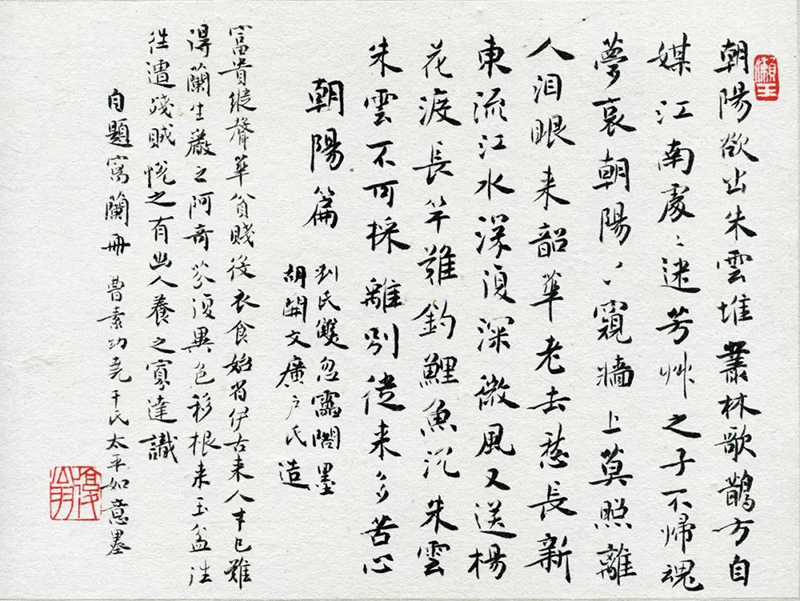 朝陽欲出朱雲堆叢林歌鵲方自
媒江南處〻迷芳艸之子不歸魂
夢哀朝陽〻窺牆上莫照離
人泪眼来韶華老去愁長新
東流江水深復深微風又送楊
花渡長竿難釣鯉魚沉朱雲
朱雲不可採離別從来多苦心
朝陽篇
刘氏雙忽雷閣墨
胡開文廣户氏造
富貴緩聲華貧賤役衣食始省伊古来人才已難
得蘭生巖之阿奇芬復異色移根来玉盆往
往遭殘賊悅之有幽人養之寡達識
自題寫蘭冊 曹素功堯千氏太平如意墨